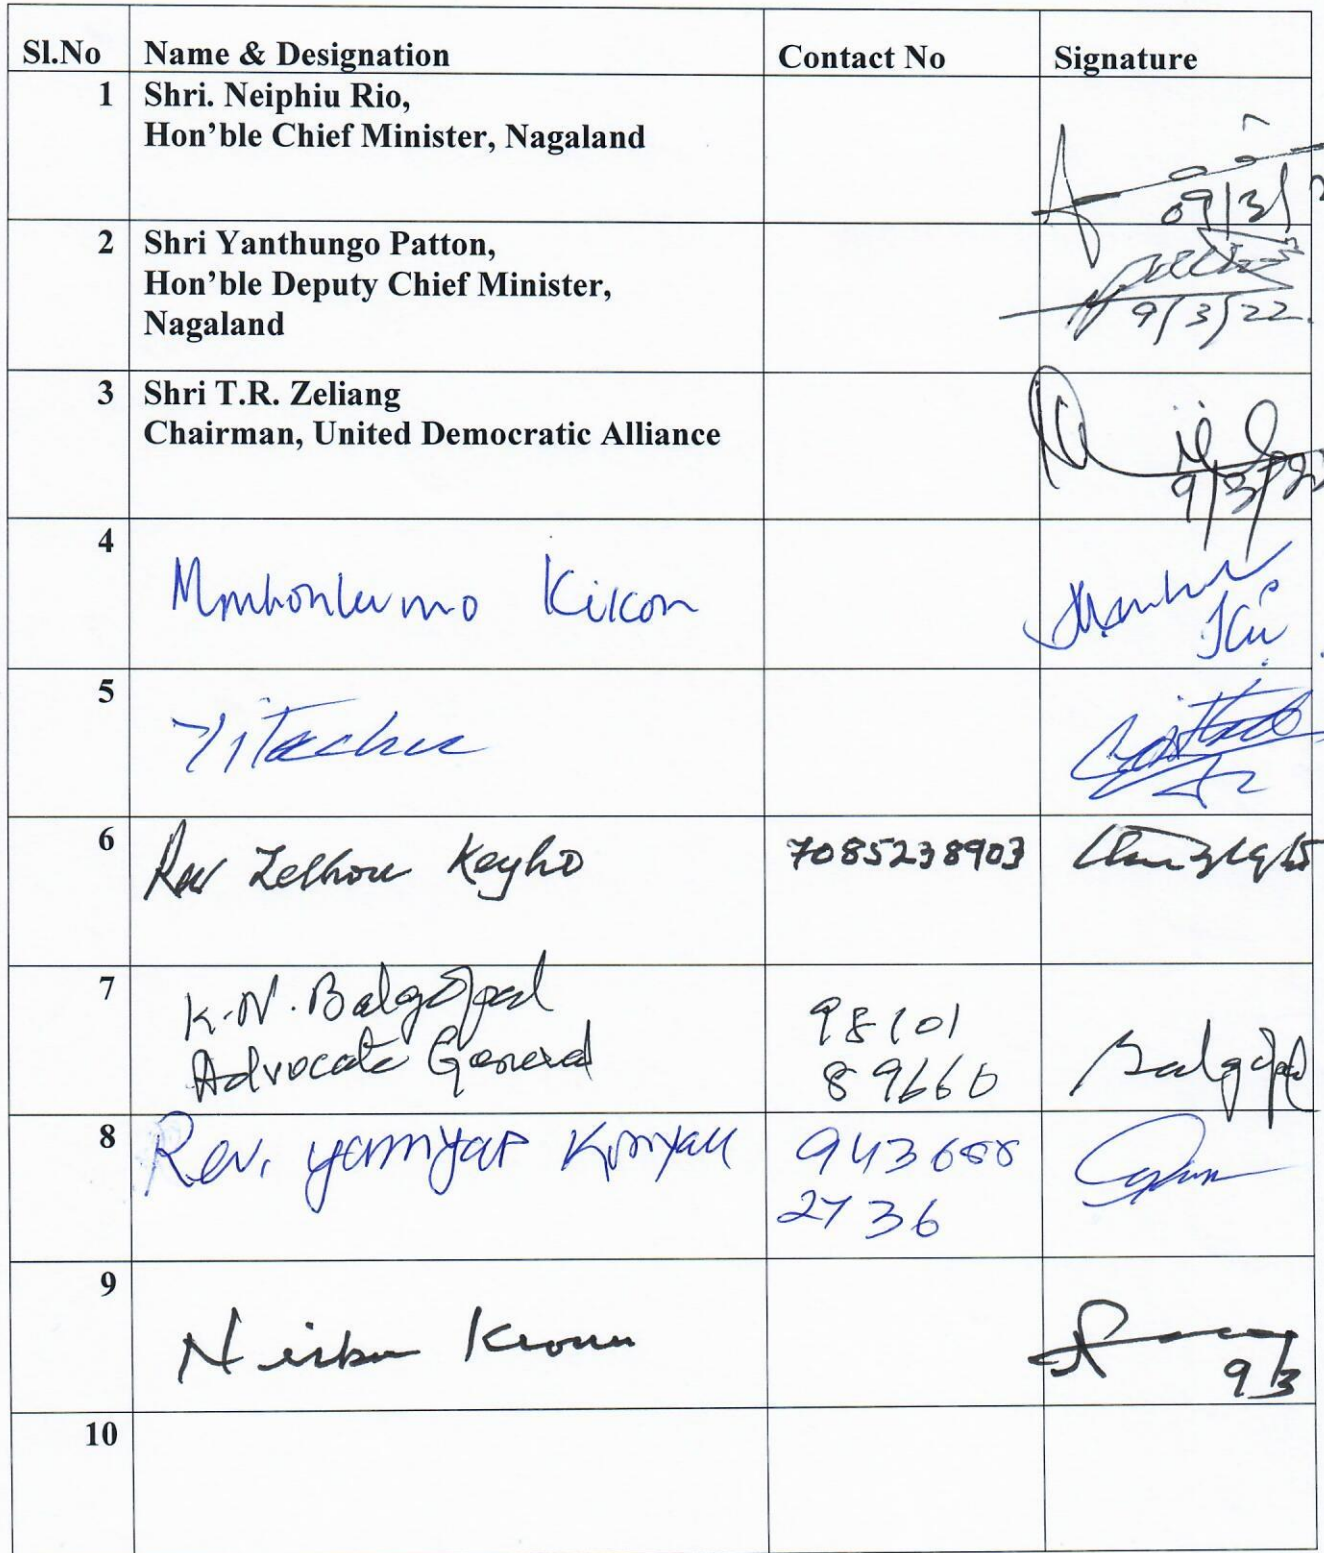 Sl.No Name & Designation Contact No Signature
1 Shri. Neiphiu Rio,
Hon'ble Chief Minister, Nagaland
09/3/
2 Shri Yanthungo Patton,
Hon'ble Deputy Chief Minister,
Nagaland
9/3/22.
3 Shri T.R. Zeliang
Chairman, United Democratic Alliance
9/3/22
4
Mmhonlumo Kikon
5
Yitachu
6
Rev Zelhou Keyho 7085238903
7
K.N. Balgopal 98101
Advocate General 89660 Balgopal
8
Rev. Yamyap Konyak 943600
2736
9
Neibu Kronu
9/3
10